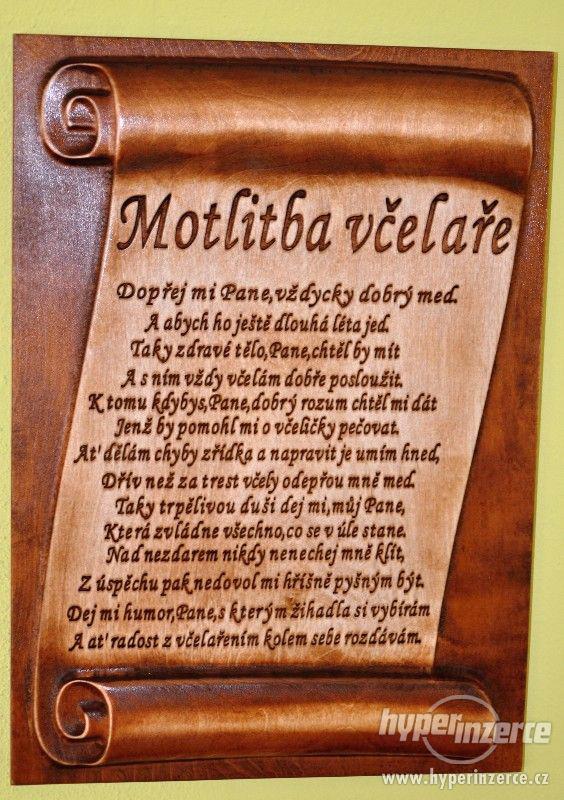 Motlitba včelaře
Dopřej mi Pane,vždycky dobrý med.
A abych ho ještě dlouhá léta jed.
Taky zdravé tělo,Pane,chtěl by mít
A s ním vždy včelám dobře posloužit.
K tomu kdybys,Pane,dobrý rozum chtěl mi dát
Jenž by pomohl mi o včeličky pečovat.
Ať dělám chyby zřídka a napravit je umím hned,
Dřív než za trest včely odepřou mně med.
Taky trpělivou duši dej mi,můj Pane,
Která zvládne všechno,co se v úle stane.
Nad nezdarem nikdy nenechej mně klít,
Z úspěchu pak nedovol mi hříšně pyšným být.
Dej mi humor,Pane,s kterým žihadla si vybírám
A ať radost z včelařením kolem sebe rozdávám.
hyperinzerce
www.hyperinzerce.cz